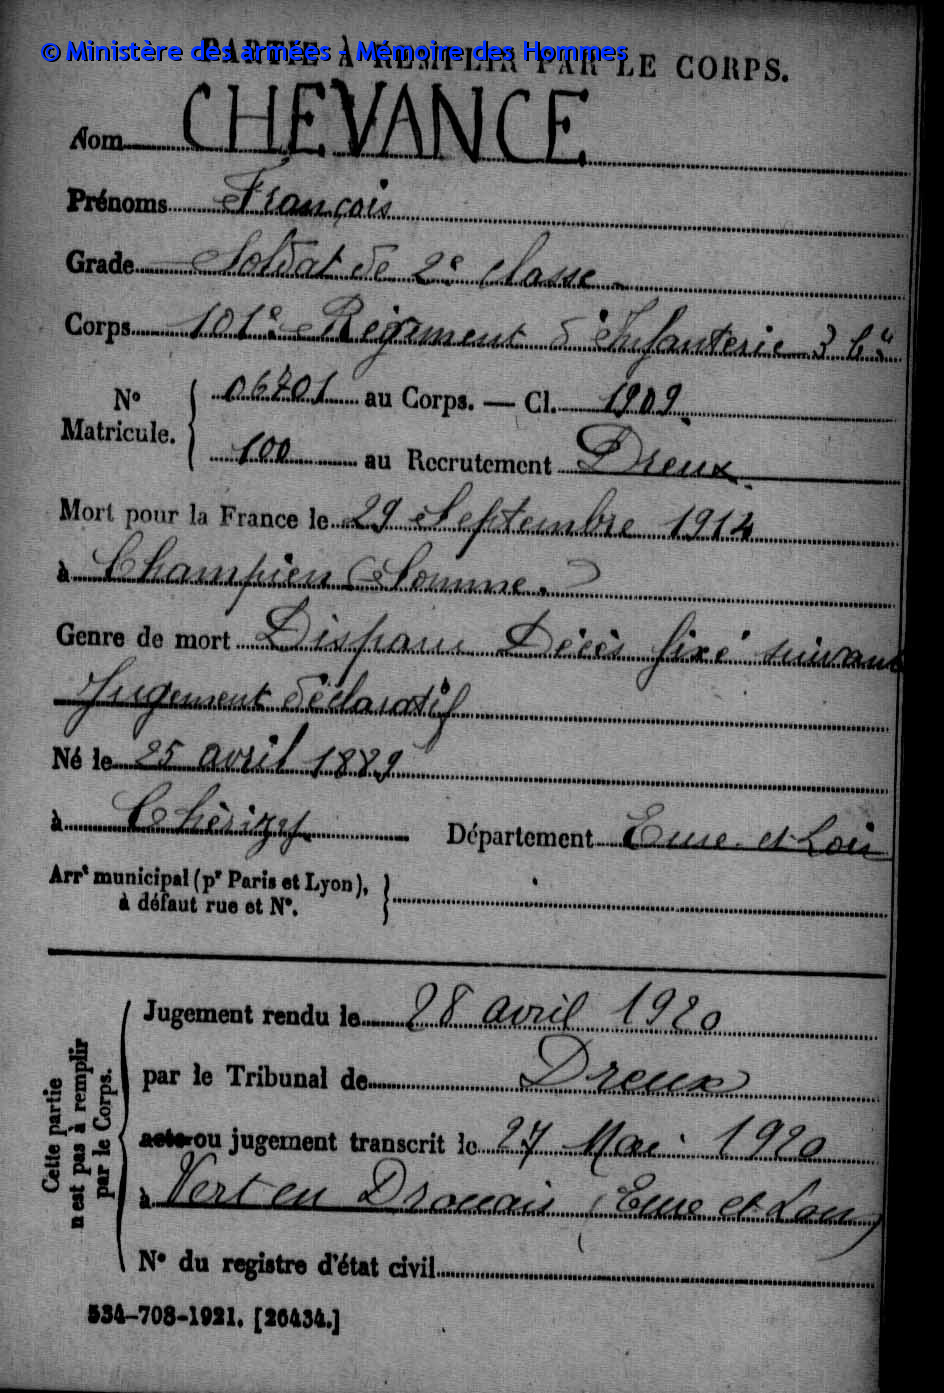 © Ministère des armées - Mémoire des Hommes
PARTIE À REMPLIR PAR LE CORPS.
Nom CHEVANCE
Prénoms François
Grade Soldat de 2e classe
Corps 101e Régiment d'Infanterie 3 
No Matricule. 06701 au Corps. — Cl. 1909
100 au Recrutement Dreux.
Mort pour la France le 29 Septembre 1914
à Champien (Somme.)
Genre de mort Disparu Décès fixé suivant
Jugement déclaratif
Né le 25 avril 1889
à Chérizy Département Eure et Loir
Arrt municipal (pr Paris et Lyon),
à défaut rue et No.
Cette partie
n'est pas à remplir
par le Corps.
Jugement rendu le 28 avril 1920
par le Tribunal de Dreux
acte ou jugement transcrit le 27 Mai 1920
à Vert en Drouais (Eure et Loir)
No du registre d'état civil
534-708-1921. [26434.]